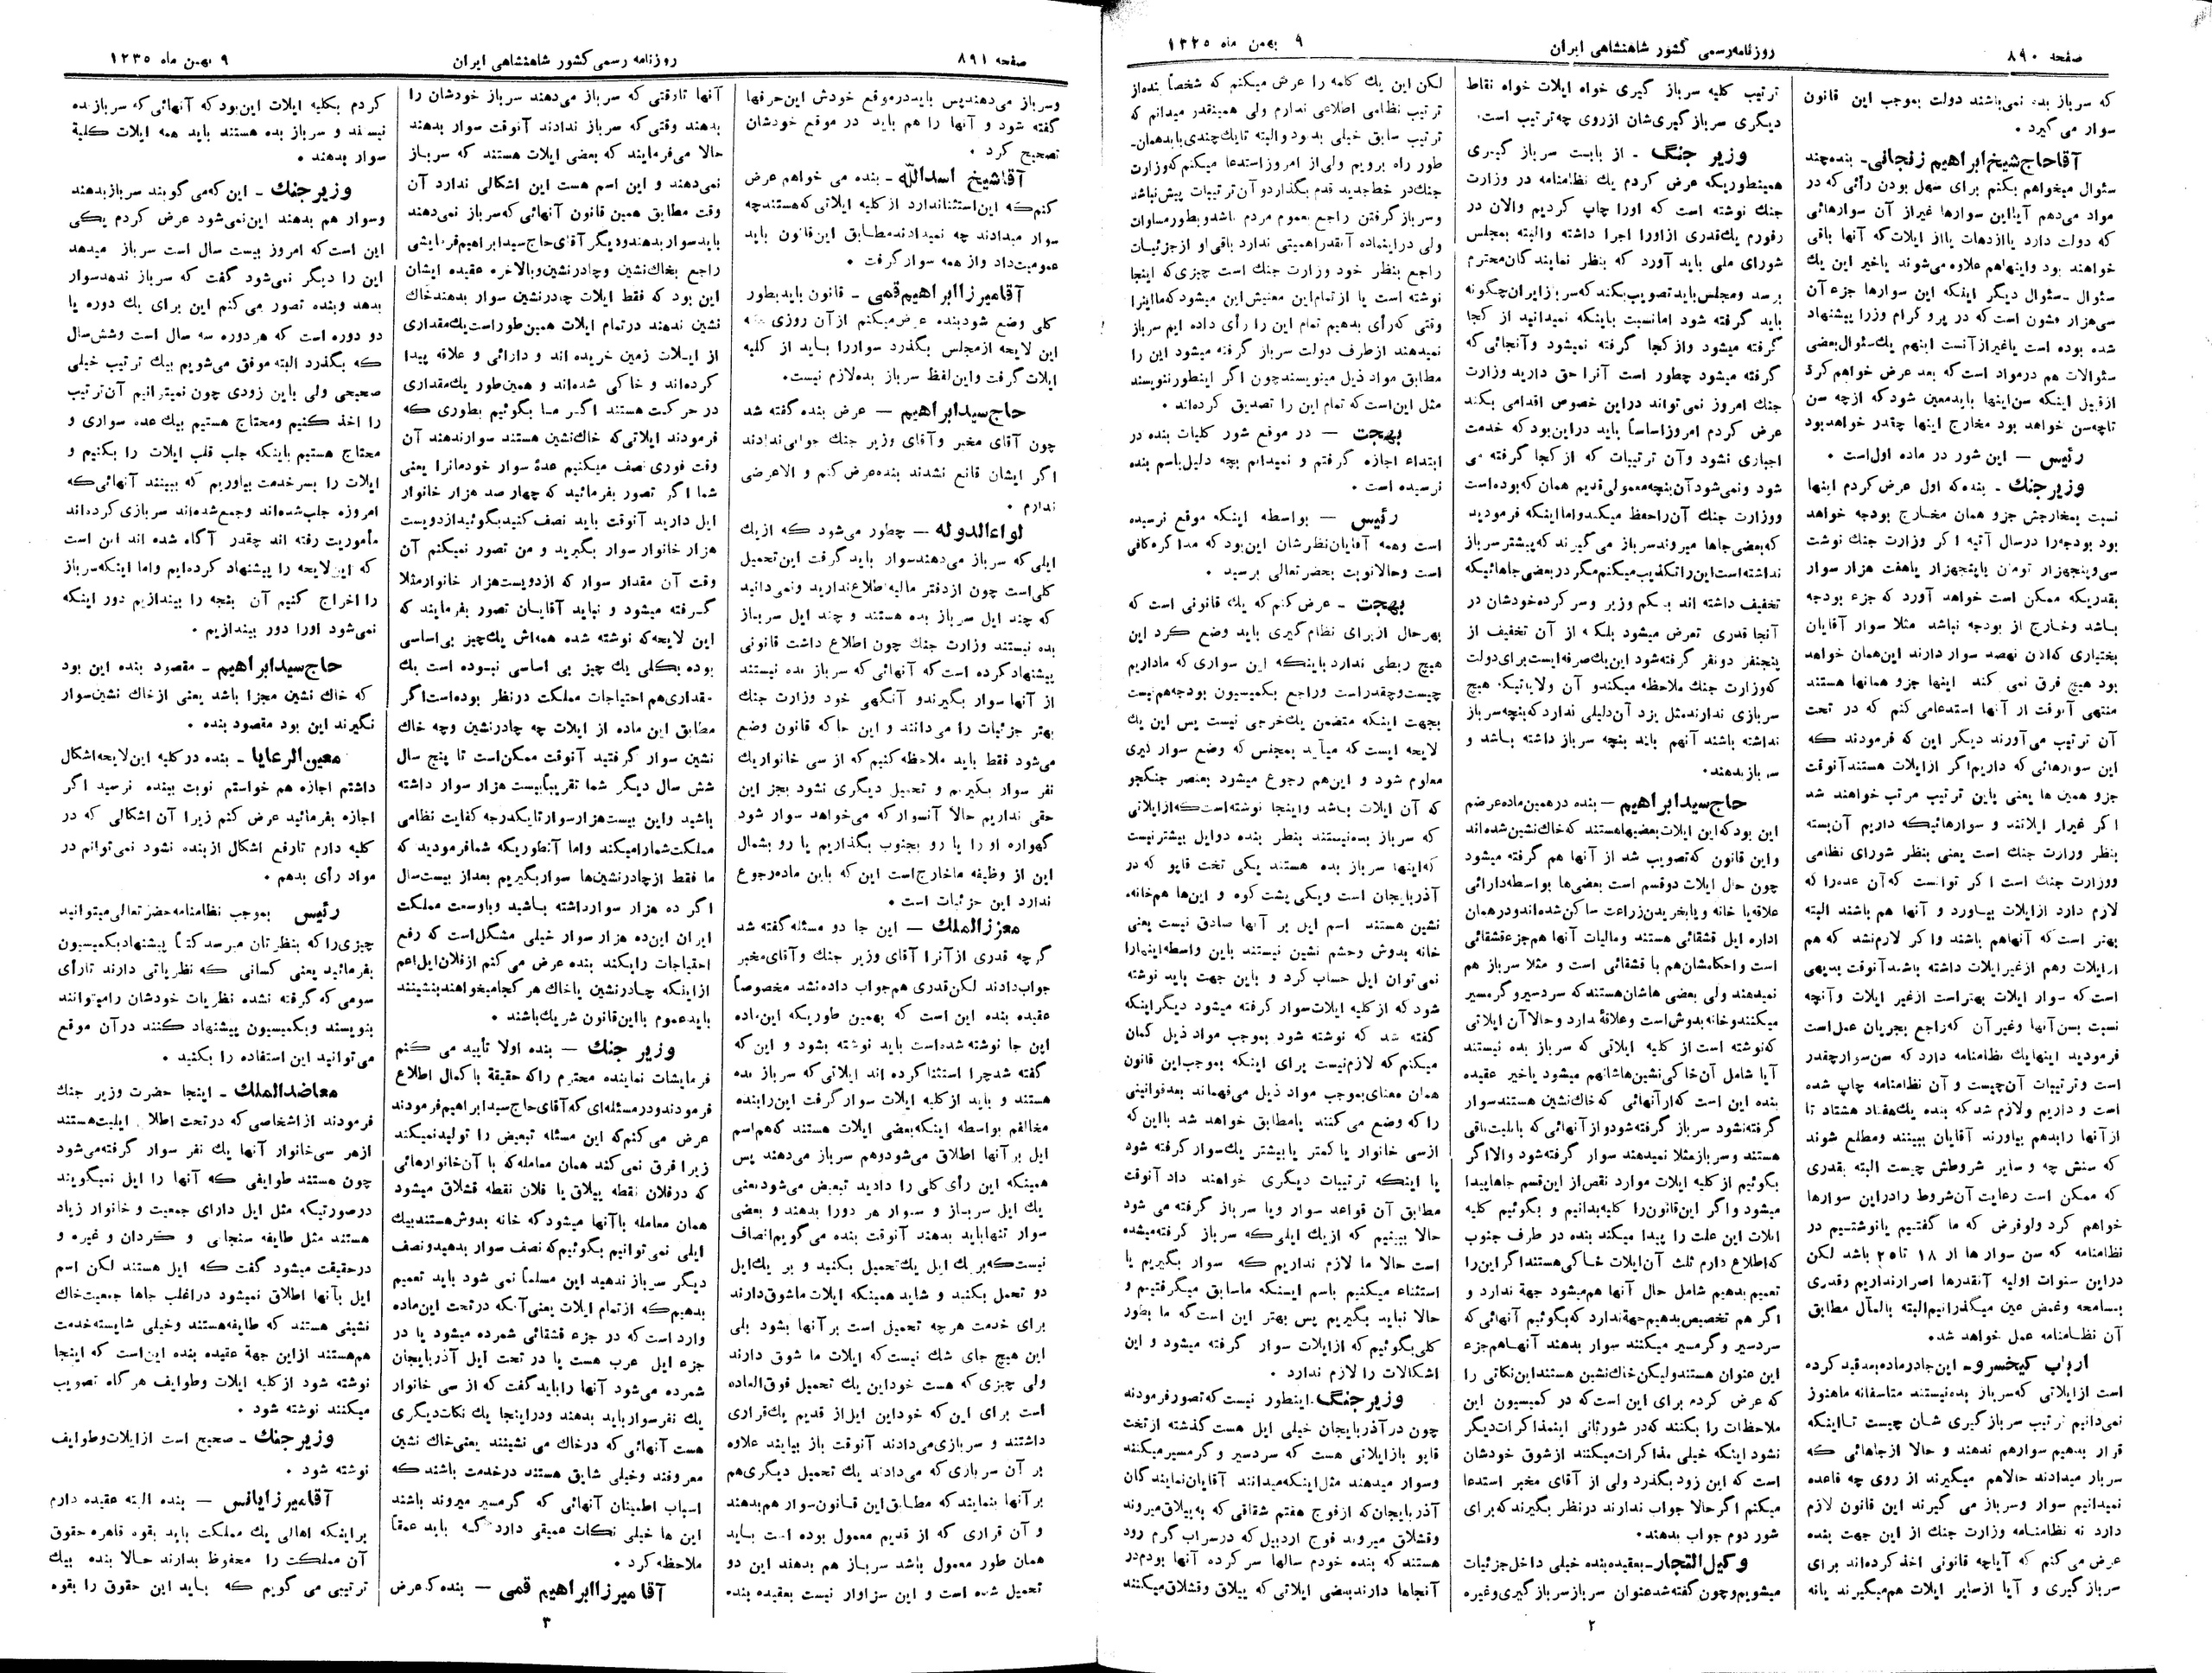 صفحه ۸۹۰
روزنامه رسمی کشور شاهنشاهی ایران
۹ بهمن ماه ۱۳۲۵
که سرباز بده نمی‌باشند دولت بموجب این قانون
سوار می گیرد .
آقا حاج شیخ ابراهیم زنجانی - بنده چند
سئوال میخواهم بکنم برای سهل بودن رأئی که در
مواد می‌دهم آیا این سوارها غیر از آن سوارهائی
که دولت دارد یا از دهات یا از ایلات که آنها باقی
خواهند بود و اینها هم علاوه می‌شوند یا خیر این یك
سئوال - سئوال دیگر اینکه این سوارها جزء آن
سی‌هزار قشون است که در پروگرام وزرا پیشنهاد
شده بوده است یا غیر از آنست اینهم یك سئوال بعضی
سئوالات هم در مواد است که بعد عرض خواهم کرد
از قبیل اینکه سن اینها باید معین شود که از چه سن
تا چه سن خواهد بود مخارج اینها چقدر خواهد بود
رئیس — این شور در ماده اول است .
وزیر جنك - بنده که اول عرض کردم اینها
نسبت بمخارجش جزو همان مخارج بودجه خواهد
بود بودجه را در سال آتیه اگر وزارت جنك نوشت
سی و پنجهزار تومان یا پنجهزار یا هفت هزار سوار
بقدریکه ممکن است خواهد آورد که جزء بودجه
باشد و خارج از بودجه نباشد مثلا سوار آقایان
بختیاری که الان نهصد سوار دارند این همان خواهد
بود هیچ فرق نمی کند اینها جزو همانها هستند
منتهی آنوقت از آنها استدعا می کنم که در تحت
آن ترتیب می آورند دیگر این که فرمودند که
این سوارهائی که داریم اگر از ایلات هستند آنوقت
جزو همین ها یعنی باین ترتیب مرتب خواهند شد
اگر غیر از ایلاتند و سوارهائیکه داریم آن بسته
بنظر وزارت جنك است یعنی بنظر شورای نظامی
و وزارت جنك است اگر توانست که آن عده را که
لازم دارد از ایلات بیاورد و آنها هم باشند البته
بهتر است که آنها هم باشند و اگر لازم نشد که هم
از ایلات و هم از غیر ایلات داشته باشید آنوقت بدیهی
است که سوار ایلات بهتر است از غیر ایلات و آنچه
نسبت بسن آنها و غیر آن که راجع بجریان عمل است
فرمودید اینها یك نظامنامه دارد که سن سوار چقدر
است و ترتیبات آن چیست و آن نظامنامه چاپ شده
است و داریم و لازم شد که بنده یك هفتاد هشتاد تا
از آنها را بدهم بیاورند آقایان ببینند و مطلع شوند
که سنش چه و سایر شروطش چیست البته بقدری
که ممکن است رعایت آن شروط را در این سوارها
خواهم کرد ولو فرض که ما گفتیم یا نوشتیم در
نظامنامه که سن سوار ها از ۱۸ تا ۲۵ باشد لکن
در این سنوات اولیه آنقدرها اصرار نداریم و قدری
بمسامحه و غمض عین میگذرانیم البته بالمآل مطابق
آن نظامنامه عمل خواهد شد.
ارباب کیخسرو- این جا در ماده بعد قید کرده
است از ایلاتی که سرباز بده نیستند متاسفانه ما هنوز
نمی‌دانیم ترتیب سرباز گیری شان چیست تا اینکه
قرار بدهیم سوار هم ندهند و حالا از جاهائی که
سرباز میدادند حالا هم میگیرند از روی چه قاعده
نمیدانیم سوار و سرباز می گیرند این قانون لازم
دارد نه نظامنامه وزارت جنك از این جهت بنده
عرض می کنم که آیا چه قانونی اخذ کرده‌اند برای
سرباز گیری و آیا از سایر ایلات هم میگیرند یا نه
ترتیب کلیه سرباز گیری خواه ایلات خواه نقاط
دیگری سرباز گیری شان از روی چه ترتیب است.
وزیر جنگ - از بابت سرباز گیری
همینطوریکه عرض کردم یك نظامنامه در وزارت
جنك نوشته است که اورا چاپ کردیم و الان در
رفورم یك قدری از اورا اجرا داشته و البته بمجلس
شورای ملی باید آورد که بنظر نمایندگان محترم
برسد و مجلس باید تصویب بکند که سرباز ایران چگونه
باید گرفته شود اما نسبت باینکه نمیدانید از کجا
گرفته میشود و از کجا گرفته نمیشود و آنجائی که
گرفته میشود چطور است آنرا حق دارید وزارت
جنك امروز نمی تواند در این خصوص اقدامی بکند
عرض کردم امروز اساساً باید در این بود که خدمت
اجباری نشود و آن ترتیبات که از کجا گرفته می
شود و نمی‌شود آن بنچه معمولی قدیم همان که بوده است
و وزارت جنك آن را حفظ میکند و اما اینکه فرمودید
که بعضی جاها میروند سرباز می گیرند که پیشتر سرباز
نداشته است این را تکذیب میکنم مگر در بعضی جاهائیکه
تخفیف داشته اند بحکم وزیر و سرکرده خودشان در
آنجا قدری تعرض میشود بلکه از آن تخفیف از
پنجنفر دو نفر گرفته شود این یك صرفه ایست برای دولت
که وزارت جنك ملاحظه میکند و آن ولایاتیکه هیچ
سربازی ندارند مثل یزد آن دلیلی ندارد که بنچه سرباز
نداشته باشند آنهم باید بنچه سرباز داشته باشد و
سرباز بدهند.
حاج سید ابراهیم — بنده در همین ماده عرضم
این بود که این ایلات بعضیها هستند که خاك نشین شده‌اند
و این قانون که تصویب شد از آنها هم گرفته میشود
چون حال ایلات دو قسم است بعضی‌ها بواسطه دارائی
علاقه یا خانه و یا بخریدن زراعت ساکن شده‌اند و در همان
اداره ایل قشقائی هستند و مالیات آنها هم جزء قشقائی
است و احکامشان هم با قشقائی است و مثلا سرباز هم
نمیدهند ولی بعضی هاشان هستند که سردسیر و گرمسیر
میکنند و خانه بدوش است و علاقهٔ ندارد و حالا آن ایلاتی
که نوشته است از کلیه ایلاتی که سرباز بده نیستند
آیا شامل آن خاکی نشین‌هاشانهم میشود یا خیر عقیده
بنده این است که از آنهائی که خاك نشین هستند سوار
گرفته نشود سرباز گرفته شود و از آنهائی که بایلیت باقی
هستند و سرباز مثلا نمیدهند سوار گرفته شود والا اگر
بگوئیم از کلیه ایلات موارد نقص از این قسم جاها پیدا
میشود و اگر این قانون را کلیه بدانیم و بگوئیم کلیه
ایلات این علت را پیدا میکند بنده در طرف جنوب
که اطلاع دارم ثلث آن ایلات خاکی هستند اگر این را
تعمیم بدهیم شامل حال آنها هم میشود جهة ندارد و
اگر هم تخصیص بدهیم جهة ندارد که بگوئیم آنهائی که
سردسیر و گرمسیر میکنند سوار بدهند آنها هم جزء
این عنوان هستند ولیکن خاك نشین هستند این نکاتی را
که عرض کردم برای این است که در کمیسیون این
ملاحظات را بکنند که در شور ثانی اینمذاکرات دیگر
نشود اینکه خیلی مذاکرات میکنند از شوق خودشان
است که این زود بگذرد ولی از آقای مخبر استدعا
میکنم اگر حالا جواب ندارند در نظر بگیرند که برای
شور دوم جواب بدهند.
وکیل التجار- بعقیده بنده خیلی داخل جزئیات
میشویم و چون گفته شد عنوان سرباز سرباز گیری و غیره
لکن این یك کلمه را عرض میکنم که شخصاً بنده از
ترتیب نظامی اطلاعی ندارم ولی همینقدر میدانم که
ترتیب سابق خیلی بد بود و البته تا یك چندی باید همان-
طور راه برویم ولی از امروز استدعا میکنم که وزارت
جنك در خط جدید قدم بگذارد و آن ترتیبات پیش نباشد
و سرباز گرفتن راجع بعموم مردم باشد و بطور مساوات
ولی در اینماده آنقدر اهمیتی ندارد باقی او از جزئیات
راجع بنظر خود وزارت جنك است چیزی که اینجا
نوشته است یا از تمام این معنیش این میشود که ما اینرا
وقتی که رأی بدهیم تمام این را رأی داده ایم سرباز
نمیدهند از طرف دولت سرباز گرفته میشود این را
مطابق مواد ذیل مینویسند چون اگر اینطور ننویسند
مثل این است که تمام این را تصدیق کرده‌اند .
بهجت — در موقع شور کلیات بنده در
ابتداء اجازه گرفتم و نمیدانم بچه دلیل باسم بنده
نرسیده است .
رئیس — بواسطه اینکه موقع نرسیده
است و همه آقایان نظرشان این بود که مذاکره کافی
است و حالا نوبت بحضرتعالی برسید .
بهجت - عرض کنم که یك قانونی است که
بهر حال از برای نظام گیری باید وضع کرد این
هیچ ربطی ندارد باینکه این سواری که ما داریم
چیست و چقدر است و راجع بکمیسیون بودجه هم نیست
بجهت اینکه متضمن یك خرجی نیست پس این یك
لایحه ایست که میآید بمجلس که وضع سوار گیری
معلوم شود و این هم رجوع میشود بعنصر جنگجو
که آن ایلات باشد و اینجا نوشته است که از ایلاتی
که سرباز بده نیستند بنظر بنده دو ایل بیشتر نیست
که اینها سرباز بده هستند یکی تخت قاپو که در
آذربایجان است و یکی پشت کوه و این‌ها هم خانه.
نشین هستند اسم ایل بر آنها صادق نیست یعنی
خانه بدوش و حشم نشین نیستند باین واسطه اینهارا
نمی‌توان ایل حساب کرد و باین جهت باید نوشته
شود که از کلیه ایلات سوار گرفته میشود دیگر اینکه
گفته شد که نوشته شود بموجب مواد ذیل گمان
میکنم که لازم نیست برای اینکه بموجب این قانون
همان معنای بموجب مواد ذیل می فهماند بعد قوانینی
را که وضع می کنند یا مطابق خواهد شد با این که
از سی خانوار یا کمتر یا بیشتر یك سوار گرفته شود
یا اینکه ترتیبات دیگری خواهند داد آنوقت
مطابق آن قواعد سوار و یا سرباز گرفته می شود
حالا ببینیم که از یك ایلی که سرباز گرفته میشده
است حالا ما لازم نداریم که سوار بگیریم یا
استثناء میکنیم باسم اینکه ما سابق میگرفتیم و
حالا نباید بگیریم پس بهتر این است که ما بطور
کلی بگوئیم که از ایلات سوار گرفته میشود و این
اشکالات را لازم ندارد .
وزیر جنگ- اینطور نیست که تصور فرمودند
چون در آذربایجان خیلی ایل هست گذشته از تخت
قاپو باز ایلاتی هست که سردسیر و گرمسیر میکنند
و سوار میدهند مثل اینکه میدانند آقایان نمایندگان
آذربایجان که از فوج هفتم شقاقی که به ییلاق میروند
و قشلاق میروند فوج اردبیل که در سراب گرم رود
هستند که بنده خودم سالها سرکرده آنها بودم در
آنجاها دارند بعضی ایلاتی که ییلاق و قشلاق میکنند
۲
صفحه ۸۹۱
روزنامه رسمی کشور شاهنشاهی ایران
۹ بهمن ماه ۱۳۳۵
و سرباز می‌دهند پس باید در موقع خودش این حرفها
گفته شود و آنها را هم باید در موقع خودشان
تصحیح کرد .
آقا شیخ اسدالله - بنده می خواهم عرض
کنم که این استثنا ندارد از کلیه ایلاتی که هستند چه
سوار میدادند چه نمیدادند مطابق این قانون باید
عمومیت داد و از همه سوار گرفت .
آقا میرزا ابراهیم قمی - قانون باید بطور
کلی وضع شود بنده عرض میکنم از آن روزی که
این لایحه از مجلس بگذرد سوار را باید از کلیه
ایلات گرفت و این لفظ سرباز بده لازم نیست.
حاج سید ابراهیم — عرض بنده گفته شد
چون آقای مخبر و آقای وزیر جنك جوابی ندادند
اگر ایشان قانع نشدند بنده عرض کنم و الا عرضی
ندارم .
لواءالدوله — چطور می‌شود که از یك
ایلی که سرباز می‌دهند سوار باید گرفت این تحمیل
کلی است چون از دفتر مالیه اطلاع ندارید و نمی‌دانید
که چند ایل سرباز بده هستند و چند ایل سرباز
بده نیستند وزارت جنك چون اطلاع داشت قانونی
پیشنهاد کرده است که آنهائی که سرباز بده نیستند
از آنها سوار بگیرند و آنگهی خود وزارت جنك
بهتر جزئیات را می‌دانند و این حا که قانون وضع
می‌شود فقط باید ملاحظه کنیم که از سی خانوار یك
نفر سوار بگیریم و تحمیل دیگری نشود بجز این
حقی نداریم حالا آنسوار که می‌خواهد سوار شود
گهواره او را یا رو بجنوب بگذاریم یا رو بشمال
این از وظیفه ما خارج است این که باین ماده رجوع
ندارد این جزئیات است .
معزز الملك — این جا دو مسئله گفته شد
گرچه قدری از آنرا آقای وزیر جنك و آقای مخبر
جواب دادند لکن قدری هم جواب داده نشد مخصوصاً
عقیده بنده این است که بهمین طوریکه این ماده
این جا نوشته شده است باید نوشته بشود و این که
گفته شد چرا استثنا کرده اند ایلاتی که سرباز بده
هستند و باید از کلیه ایلات سوار گرفت این را بنده
مخالفم بواسطه اینکه بعضی ایلات هستند که هم اسم
ایل بر آنها اطلاق می‌شود و هم سرباز می‌دهند پس
همینکه این رأی کلی را دادید تبعیض می‌شود یعنی
یك ایل سرباز و سوار هر دو را بدهند و بعضی
سوار تنها باید بدهند آنوقت بنده می گویم انصاف
نیست که بر یك ایل یك تحمیل بکنید و بر یك ایل
دو تحمل بکنید و شاید همینکه ایلات ما شوق دارند
برای خدمت هر چه تحمیل است بر آنها بشود بلی
این هیچ جای شك نیست که ایلات ما شوق دارند
ولی چیزی که هست خود این یك تحمیل فوق العاده
است برای این که خود این ایل از قدیم یك قراری
داشتند و سربازی می‌دادند آنوقت باز بیایند علاوه
بر آن سربازی که می‌دادند یك تحمیل دیگری هم
بر آنها بنمایند که مطابق این قانون سوار هم بدهند
و آن قراری که از قدیم معمول بوده است باید
همان طور معمول باشد سرباز هم بدهند این دو
تحمیل شده است و این سزاوار نیست بعقیده بنده
آنها تا وقتی که سرباز می‌دهند سرباز خودشان را
بدهند وقتی که سرباز ندادند آنوقت سوار بدهند
حالا می‌فرمایند که بعضی ایلات هستند که سرباز
نمی‌دهند و این اسم هست این اشکالی ندارد آن
وقت مطابق همین قانون آنهائی که سرباز نمی‌دهند
باید سوار بدهند و دیگر آقای حاج سید ابراهیم فرمایشی
راجع بخاك نشین و چادر نشین و بالاخره عقیده ایشان
این بود که فقط ایلات چادر نشین سوار بدهند خاك
نشین ندهند در تمام ایلات همین طور است یك مقداری
از ایلات زمین خریده اند و دارائی و علاقه پیدا
کرده‌اند و خاکی شده‌اند و همین طور یك مقداری
در حرکت هستند اگر ما بگوئیم بطوری که
فرمودند ایلاتی که خاك نشین هستند سوار ندهند آن
وقت فوری نصف میکنیم عدهٔ سوار خودمانرا یعنی
شما اگر تصور بفرمائید که چهار صد هزار خانوار
ایل دارید آنوقت باید نصف کنید بگوئید از دویست
هزار خانوار سوار بگیرید و من تصور نمیکنم آن
وقت آن مقدار سوار که از دویست هزار خانوار مثلا
گرفته میشود و نباید آقایان تصور بفرمایند که
این لایحه که نوشته شده همه‌اش یك چیز بی‌اساسی
بوده بکلی یك چیز بی اساسی نبوده است یك
مقداری هم احتیاجات مملکت در نظر بوده است اگر
مطابق این ماده از ایلات چه چادر نشین و چه خاك
نشین سوار گرفتید آنوقت ممکن است تا پنج سال
شش سال دیگر شما تقریباً بیست هزار سوار داشته
باشید و این بیست هزار سوار تا یکدرجه کفایت نظامی
مملکت شما را میکند و اما آنطوریکه شما فرمودید که
ما فقط از چادر نشین‌ها سوار بگیریم بعد از بیست سال
اگر ده هزار سوار داشته باشید و با وسعت مملکت
ایران این ده هزار سوار خیلی مشگل است که رفع
احتیاجات را بکند بنده عرض می کنم از فلان ایل اعم
از اینکه چادر نشین یا خاك هر کجا میخواهند بنشینند
باید عموم با این قانون شریك باشند .
وزیر جنك — بنده اولا تأیید می کنم
فرمایشات نماینده محترم را که حقیقة با کمال اطلاع
فرمودند و در مسئله‌ای که آقای حاج سید ابراهیم فرمودند
عرض می کنم که این مسئله تبعیض را تولید نمیکند
زیرا فرق نمی کند همان معامله که با آن خانوارهائی
که در فلان نقطه ییلاق یا فلان نقطه قشلاق میشود
همان معامله با آنها میشود که خانه بدوش هستند بیك
ایلی نمی‌توانیم بگوئیم که نصف سوار بدهید و نصف
دیگر سرباز ندهید این مسلماً نمی شود باید تعمیم
بدهیم که از تمام ایلات یعنی آنکه در تحت این ماده
وارد است که در جزء قشقائی شمرده میشود یا در
جزء ایل عرب هست یا در تحت ایل آذربایجان
شمرده می‌شود آنها را باید گفت که از سی خانوار
یك نفر سوار باید بدهند و در اینجا یك نکات دیگری
هست آنهائی که در خاك می نشینند یعنی خاك نشین
معروفند و خیلی شایق هستند در خدمت باشند که
اسباب اطمینان آنهائی که گرمسیر میروند باشند
این ها خیلی نکات عمیقی دارد که باید عمقاً
ملاحظه کرد .
آقا میرزا ابراهیم قمی — بنده که عرض
کردم بکلیه ایلات این بود که آنهائی که سرباز بده
نیستند و سرباز بده هستند باید همه ایلات کلیة
سوار بدهند .
وزیر جنك - این که می گویند سرباز بدهند
و سوار هم بدهند این نمی‌شود عرض کردم یکی
این است که امروز بیست سال است سرباز میدهد
این را دیگر نمی‌شود گفت که سرباز ندهد سوار
بدهد و بنده تصور می کنم این برای یك دوره یا
دو دوره است که هر دوره سه سال است و شش سال
که بگذرد البته موفق می‌شویم بیك ترتیب خیلی
صحیحی ولی باین زودی چون نمیتوانیم آن ترتیب
را اخذ کنیم و محتاج هستیم بیك عده سواری و
محتاج هستیم باینکه جلب قلب ایلات را بکنیم و
ایلات را بسر خدمت بیاوریم که ببینند آنهائی که
امروزه جلب شده‌اند و جمع شده‌اند سربازی کرده‌اند
مأموریت رفته اند چقدر آگاه شده اند این است
که این لایحه را پیشنهاد کرده‌ایم و اما اینکه سرباز
را اخراج کنیم آن بنچه را بیندازیم دور اینکه
نمی‌شود اورا دور بیندازیم .
حاج سید ابراهیم - مقصود بنده این بود
که خاك نشین مجزا باشد یعنی از خاك نشین سوار
نگیرند این بود مقصود بنده .
معین الرعایا - بنده در کلیه این لایحه اشکال
داشتم اجازه هم خواستم نوبت ببنده نرسید اگر
اجازه بفرمائید عرض کنم زیرا آن اشکالی که در
کلیه دارم تا رفع اشکال از بنده نشود نمی‌توانم در
مواد رأی بدهم .
رئیس بموجب نظامنامه حضرتعالی میتوانید
چیزی را که بنظرتان میرسد کتباً پیشنهاد بکمیسیون
بفرمائید یعنی کسانی که نظریاتی دارند تا رأی
سومی که گرفته نشده نظریات خودشان را میتوانند
بنویسند و بکمیسیون پیشنهاد کنند در آن موقع
می‌توانید این استفاده را بکنید .
معاضد الملك - اینجا حضرت وزیر جنك
فرمودند از اشخاصی که در تحت اطلاق ایلیت هستند
از هر سی خانوار آنها یك نفر سوار گرفته می‌شود
چون هستند طوایفی که آنها را ایل نمیگویند
در صورتیکه مثل ایل دارای جمعیت و خانوار زیاد
هستند مثل طایفه سنجابی و کردان و غیره و
در حقیقت میشود گفت که ایل هستند لکن اسم
ایل بآنها اطلاق نمیشود در اغلب جاها جمعیت خاك
نشینی هستند که طایفه هستند و خیلی شایسته خدمت
هم هستند از این جهة عقیده بنده این است که اینجا
نوشته شود از کلیه ایلات و طوایف هر گاه تصویب
میکنند نوشته شود .
وزیر جنك - صحیح است از ایلات و طوایف
نوشته شود .
آقا میرزا یانس — بنده البته عقیده دارم
بر اینکه اهالی یك مملکت باید بقوه قاهره حقوق
آن مملکت را محفوظ بدارند حالا بنده بیك
ترتیبی می گویم که باید این حقوق را بقوه
۳